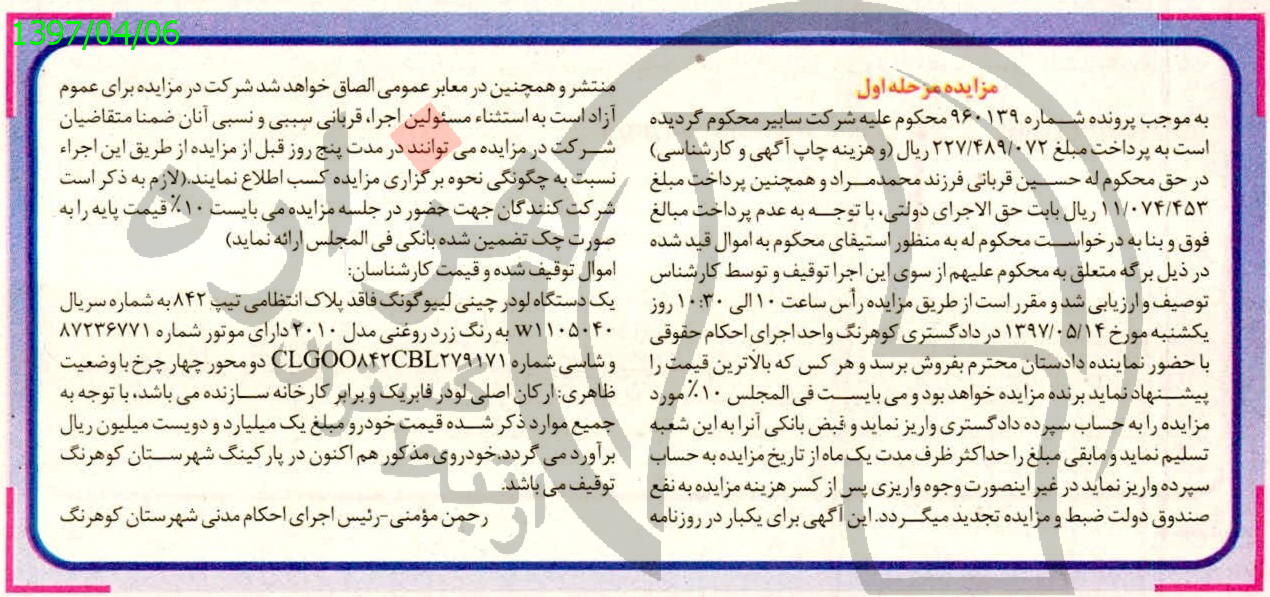 1397/04/06
مزایده مرحله اول
به موجب پرونده شماره ۹۶۰۱۳۹ محکوم علیه شرکت سابیر محکوم گردیده
است به پرداخت مبلغ ۲۲۷/۴۸۹/۰۷۲ ریال (و هزینه چاپ آگهی و کارشناسی)
در حق محکوم له حسین قربانی فرزند محمدمراد و همچنین پرداخت مبلغ
۱۱/۰۷۴/۴۵۳ ریال بابت حق الاجرای دولتی، با توجه به عدم پرداخت مبالغ
فوق و بنا به درخواست محکوم له به منظور استیفای محکوم به اموال قید شده
در ذیل برگه متعلق به محکوم علیهم از سوی این اجرا توقیف و توسط کارشناس
توصیف و ارزیابی شد و مقرر است از طریق مزایده رأس ساعت ۱۰ الی ۱۰:۳۰ روز
یکشنبه مورخ ۱۳۹۷/۰۵/۱۴ در دادگستری کوهرنگ واحد اجرای احکام حقوقی
با حضور نماینده دادستان محترم بفروش برسد و هر کس که بالاترین قیمت را
پیشنهاد نماید برنده مزایده خواهد بود و می بایست فی المجلس ۱۰٪ مورد
مزایده را به حساب سپرده دادگستری واریز نماید و قبض بانکی آنرا به این شعبه
تسلیم نماید و مابقی مبلغ را حداکثر ظرف مدت یک ماه از تاریخ مزایده به حساب
سپرده واریز نماید در غیر اینصورت وجوه واریزی پس از کسر هزینه مزایده به نفع
صندوق دولت ضبط و مزایده تجدید میگردد. این آگهی برای یکبار در روزنامه
منتشر و همچنین در معابر عمومی الصاق خواهد شد شرکت در مزایده برای عموم
آزاد است به استثناء مسئولین اجرا، قربانی سببی و نسبی آنان ضمنا متقاضیان
شرکت در مزایده می توانند در مدت پنج روز قبل از مزایده از طریق این اجراء
نسبت به چگونگی نحوه برگزاری مزایده کسب اطلاع نمایند.(لازم به ذکر است
شرکت کنندگان جهت حضور در جلسه مزایده می بایست ۱۰٪ قیمت پایه را به
صورت چک تضمین شده بانکی فی المجلس ارائه نماید)
اموال توقیف شده و قیمت کارشناسان:
یک دستگاه لودر چینی لیپوگونگ فاقد پلاک انتظامی تیپ ۸۴۲ به شماره سریال
W۱۱۰۵۰۴۰ به رنگ زرد روغنی مدل ۲۰۱۰ دارای موتور شماره ۸۷۲۳۶۷۷۱
و شاسی شماره CLGOO۸۴۲CBL۲۷۹۱۷۱ دو محور چهار چرخ با وضعیت
ظاهری: ارکان اصلی لودر فابریک و برابر کارخانه سازنده می باشد، با توجه به
جمیع موارد ذکر شده قیمت خودرو مبلغ یک میلیارد و دویست میلیون ریال
برآورد می گردد.خودروی مذکور هم اکنون در پارکینگ شهرستان کوهرنگ
توقیف می باشد.
رحمن مؤمنی-رئیس اجرای احکام مدنی شهرستان کوهرنگ